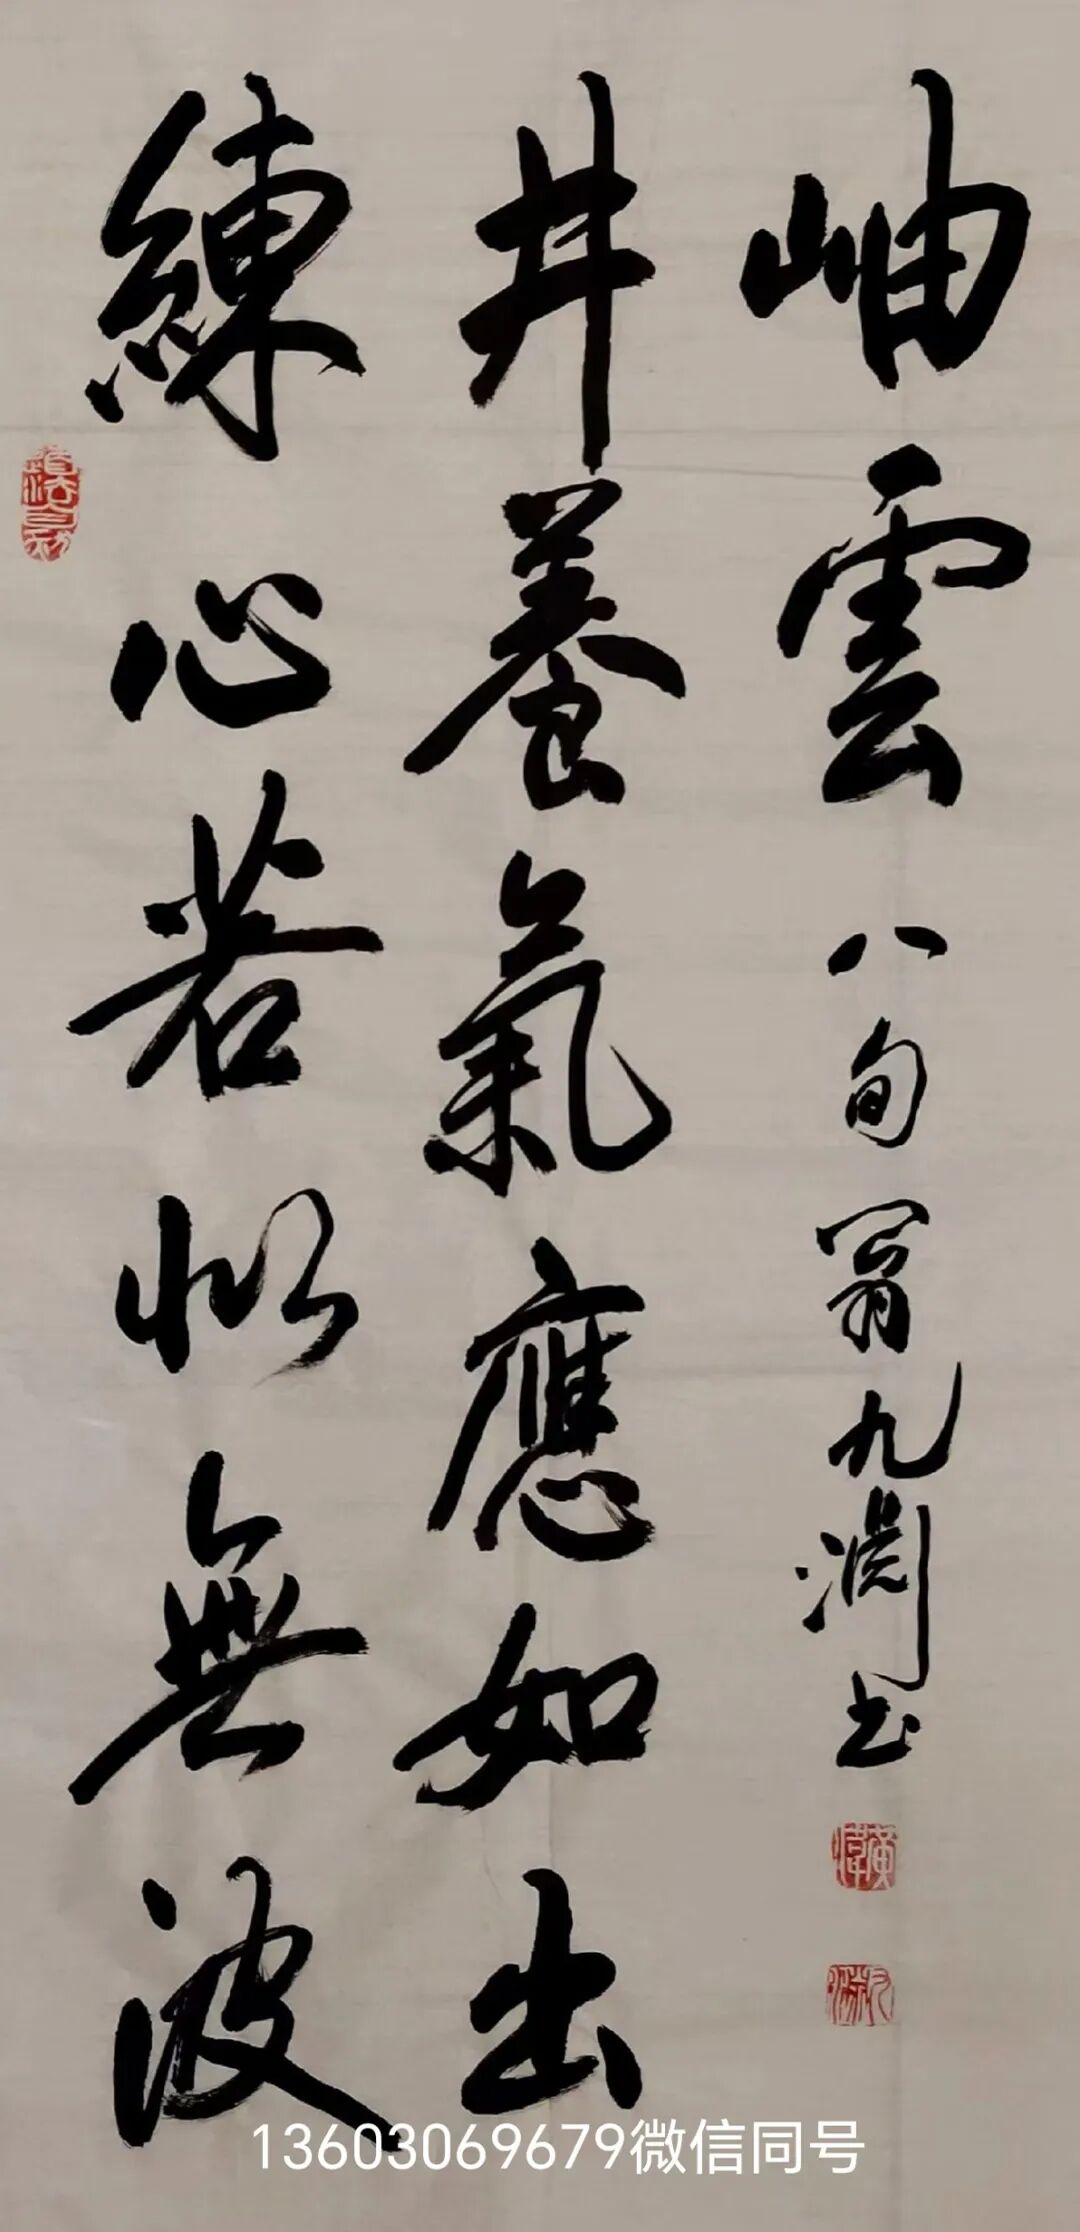 練心若似無波
井養氣應如出
岫雲 八旬翁九淵書
道法自然
13603069679微信同号